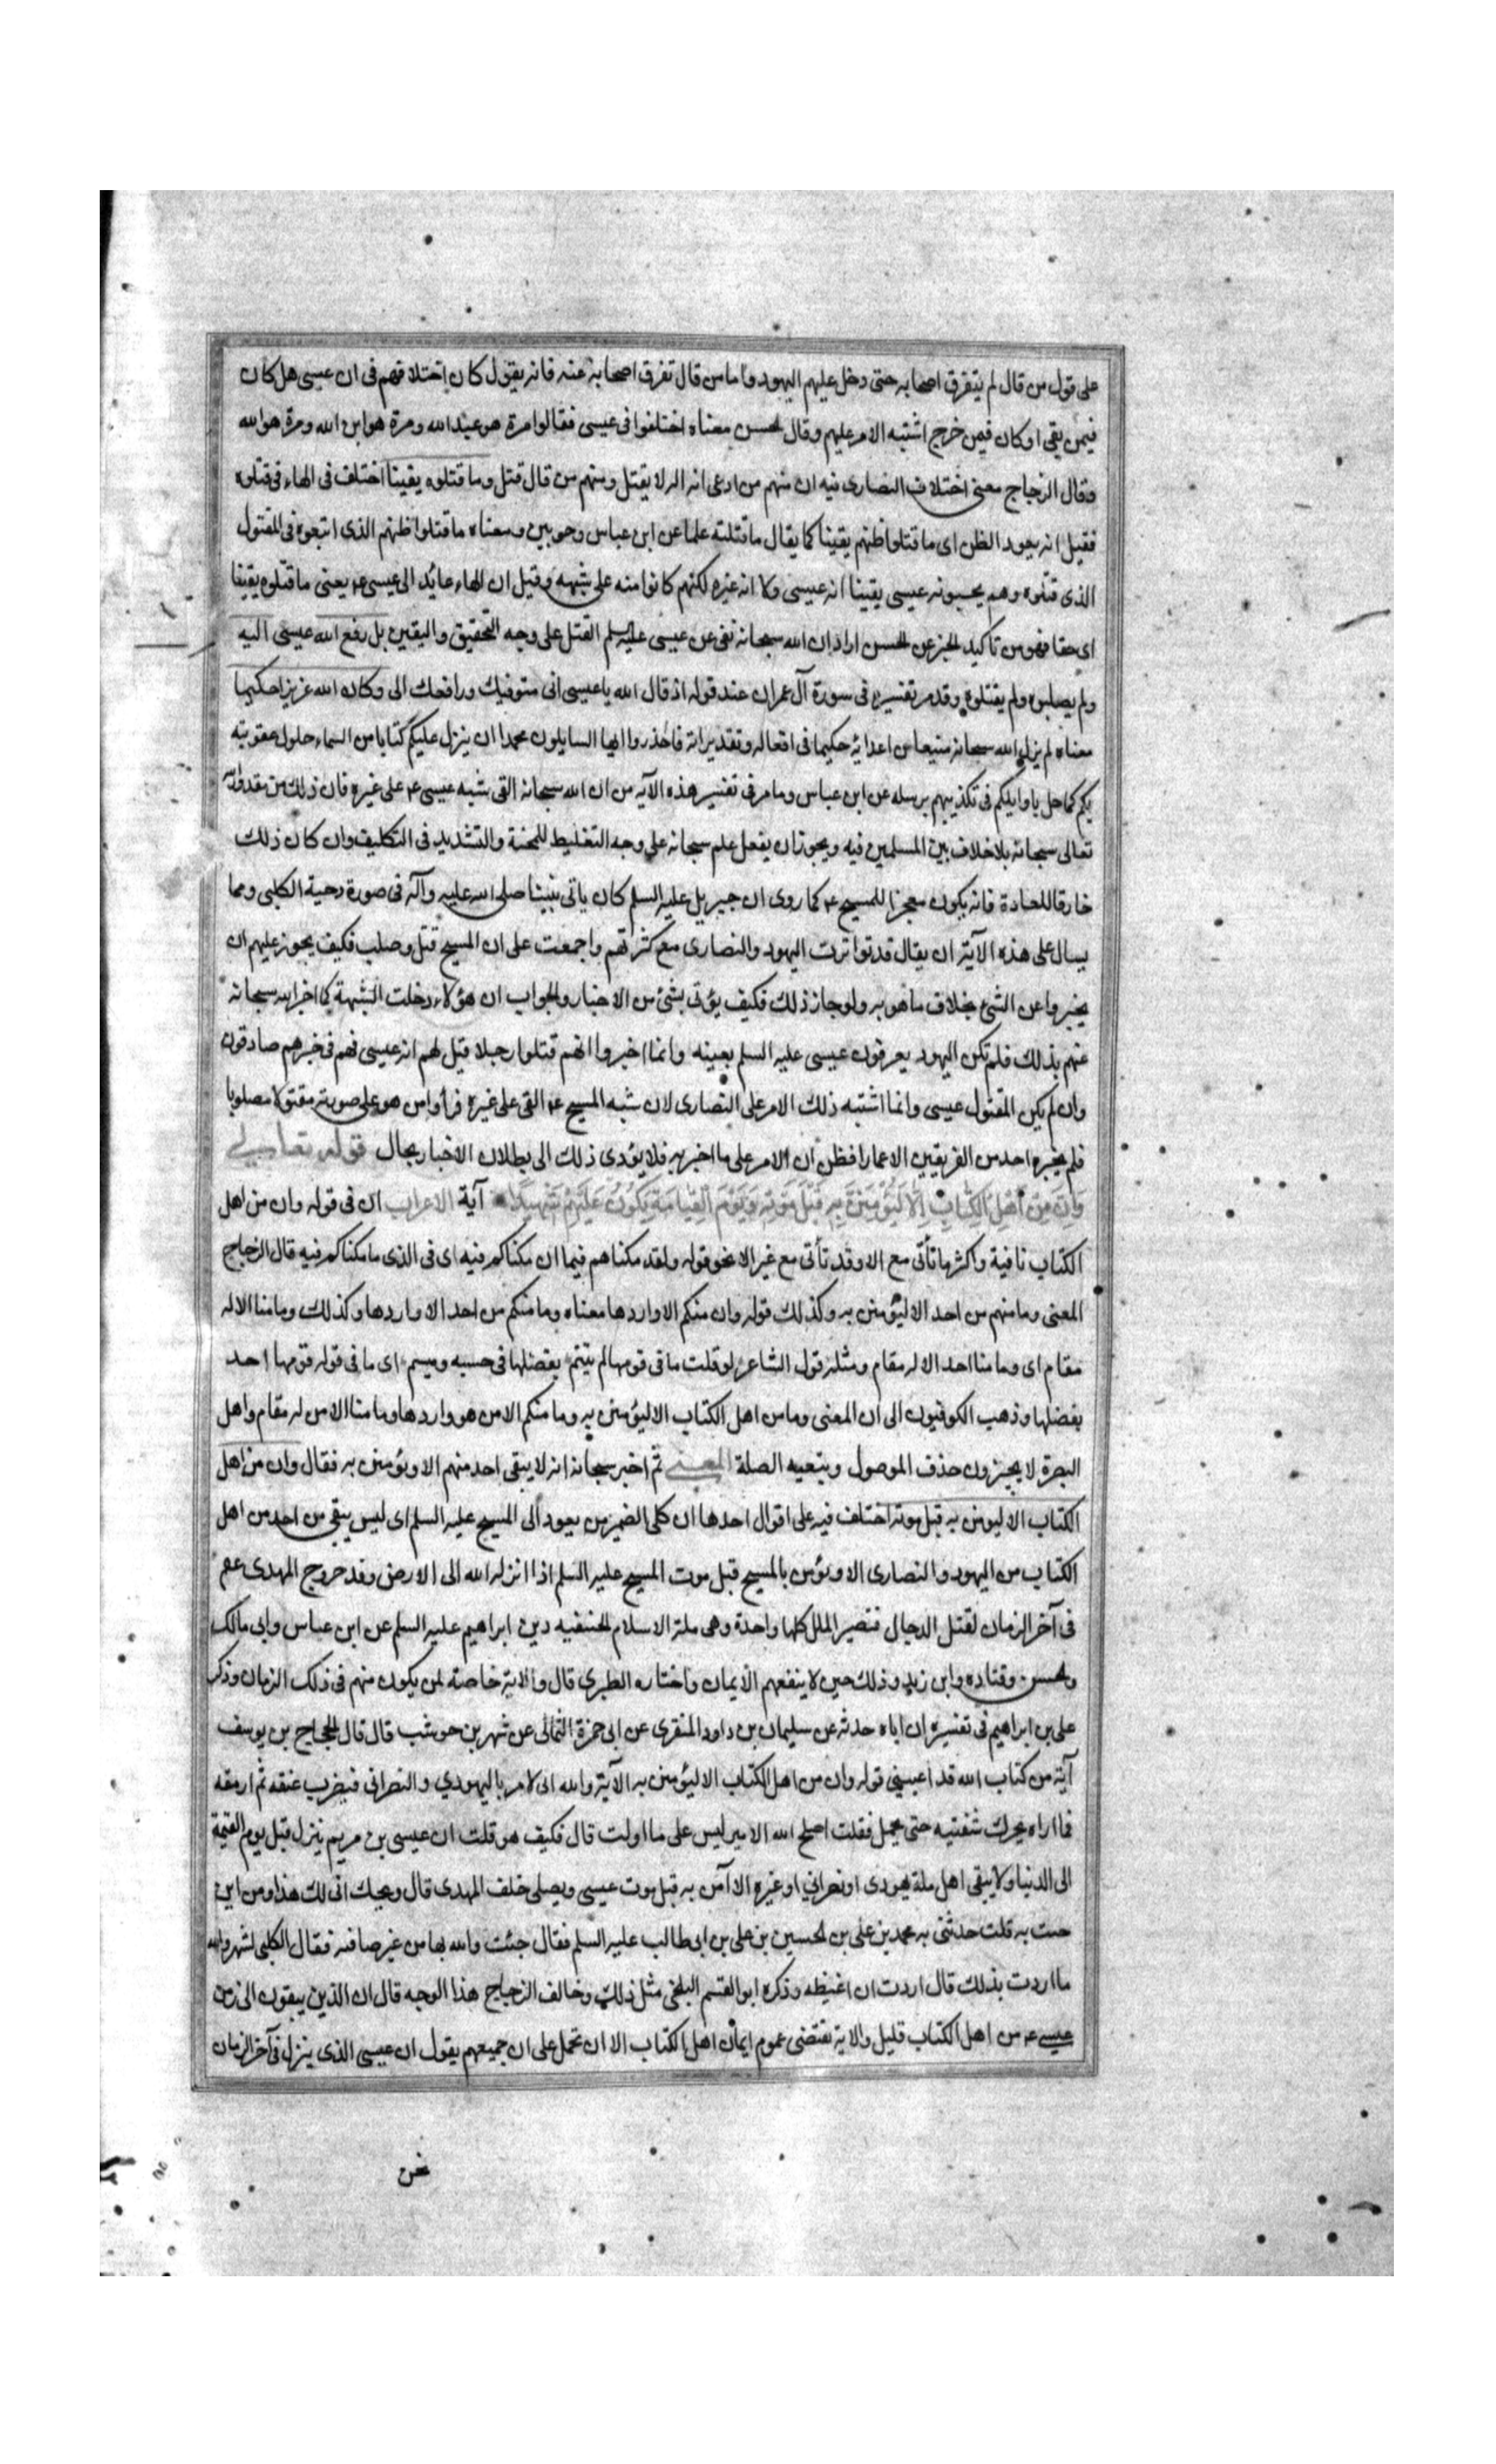 على قول من قال لم يتفرق اصحابه حتى دخل عليهم اليهود واما من قال تفرق اصحابه عنه فانه يقول كان اختلافهم فى ان عيسى هل كان
فيمن بقى او كان فيمن خرج اشتبه الامر عليهم وقال الحسن معناه اختلفوا فى عيسى فقالوا مرة هو عبد الله ومرة هو ابن الله ومرة هو الله
وقال الزجاج معنى اختلاف النصارى فيه ان منهم من ادعى انه اله لا يقتل ومنهم من قال قتل وما قتلوه يقينا اختلف فى الهاء فى قتلوه
فقيل انه يعود الظن اى ما قتلوا ظنهم يقينا كما يقال ما قتلته علما عن ابن عباس وجويبر ومعناه ما قتلوا ظنهم الذى اتبعوه فى المقتول
الذى قتلوه وهم يحسبونه عيسى يقينا انه عيسى ولا انه غيره لكنهم كانوا منه على شبهه وقيل ان الهاء عائد الى عيسى ع يعنى ما قتلوه يقينا
اى حقا فهو من تاكيد الخبر عن الحسن اراد ان الله سبحانه نفى عن عيسى عليه السلم القتل على وجه التحقيق واليقين بل رفع الله عيسى اليه
ولم يصلبوه ولم يقتلوه وقد مر تفسيره فى سورة آل عمران عند قوله اذ قال الله يا عيسى انى متوفيك ورافعك الى وكان الله عزيزا حكيما
معناه لم يزل الله سبحانه منيعا من اعدائه حكيما فى افعاله وتقديراته فاحذروا ايها السايلون محمدا ان ينزل عليكم كتابا من السماء حلول عقوبته
بكم كما حل باوايلكم فى تكذيبهم برسله عن ابن عباس وما مر فى تفسير هذه الآيه من ان الله سبحانه القى شبه عيسى ع على غيره فان ذلك من مقدور الله
تعالى سبحانه بلا خلاف بين المسلمين فيه ويجوز ان يفعل علم سبحانه على وجه التغليظ للمحنة والتشديد فى التكليف وان كان ذلك
خارقا للعادة فانه يكون معجزا للمسيح ع كما روى ان جبريل عليه السلم كان ياتى نبينا صلى الله عليه وآله فى صورة دحية الكلبى ومما
يسال على هذه الآية ان يقال قد تواترت اليهود والنصارى مع كثرتهم واجمعت على ان المسيح قتل وصلب فكيف يجوز عليهم ان
يخبروا عن الشئ بخلاف ما هو به ولو جاز ذلك فكيف يؤتى بشئ من الاخبار والجواب ان هؤلاء دخلت الشبهة كما اخبر الله سبحانه
عنهم بذلك فلم تكن اليهود يعرفون عيسى عليه السلم بعينه وانما اخبروا انهم قتلوا رجلا قيل لهم انه عيسى فهم فى خبرهم صادقون
وان لم يكن المقتول عيسى وانما اشتبه ذلك الامر على النصارى لان شبه المسيح ع القى على غيره فراوا من هو على صورته مقتولا مصلوبا
فلم يخبره احد من الفريقين الا عما راه فظن ان الامر على ما اخبر به فلا يؤدى ذلك الى بطلان الاخبار بحال قوله تعالى
وَاِنْ مِنْ اَهْلِ الْكِتَابِ اِلَّا لَيُؤْمِنَنَّ بِهِ قَبْلَ مَوْتِهِ وَيَوْمَ الْقِيَامَةِ يَكُونُ عَلَيْهِمْ شَهِيدًا آية الاعراب ان فى قوله وان من اهل
الكتاب نافية واكثر ما تأتى مع الا وقد تأتى مع غير الا نحو قوله ولقد مكناهم فيما ان مكناكم فيه اى فى الذى ما مكناكم فيه قال الزجاج
المعنى وما منهم من احد الا ليؤمنن به وكذلك قوله وان منكم الا واردها معناه وما منكم من احد الا واردها وكذلك وما منا الا له
مقام اى وما منا احد الا له مقام ومثله قول الشاعر لو قلت ما فى قومها لم تيثم يفضلها فى حسبه وميسم اى ما فى قوله قومها احد
يفضلها وذهب الكوفيون الى ان المعنى وما من اهل الكتاب الا ليؤمنن به وما منكم الا من هو واردها وما منا الا من له مقام واهل
البصرة لا يجيزون حذف الموصول وبتعيه الصلة المعنى ثم اخبر سبحانه انه لا يبقى احد منهم الا ويؤمنن به فقال وان من اهل
الكتاب الا ليومنن به قبل موته اختلف فيه على اقوال احدها ان كلى الضميرين يعود الى المسيح عليه السلم اى ليس يبقى من احد من اهل
الكتاب من اليهود والنصارى الا ويؤمن بالمسيح قبل موت المسيح عليه السلم اذا انزله الله الى الارض وقد خروج المهدى عم
فى آخر الزمان لقتل الدجال فتصير الملل كلها واحدة وهى ملة الاسلام الحنيفيه دين ابراهيم عليه السلم عن ابن عباس وابى مالك
والحسن وقتاده وابن زيد وذلك حين لا ينفعهم الايمان واختاره الطبرى قال والاية خاصة لمن يكون منهم فى ذلك الزمان وذكر
على بن ابراهيم فى تفسيره ان اباه حدثه عن سليمان بن داود المنقرى عن ابى حمزة الثمالى عن شهر بن حوشب قال قال الحجاج بن يوسف
آية من كتاب الله قد اعيتنى قوله وان من اهل الكتاب الا ليؤمنن به الآية والله انى لامر باليهودي والنصرانى فيضرب عنقه ثم ارمقه
فما اراه يحرك شفتيه حتى يحمل فقلت اصلح الله الامير ليس على ما اولت قال فكيف هو قلت ان عيسى بن مريم ينزل قبل يوم القيمة
الى الدنيا ولا يبقى اهل ملة يهودى او نصرانى او غيره الا آمن به قبل موت عيسى ويصلى خلف المهدى قال ويحك انى لك هذا ومن اين
جيت به قلت حدثنى به محمد بن على بن الحسين بن على بن ابى طالب عليه السلم فقال جئت والله بها من عين صافية فقال الكلبى لشهر والله
ما اردت بذلك قال اردت ان اغيظه وذكره ابو القسم البلخى مثل ذلك وخالف الزجاج هذا الوجه قال ان الذين يبقون الى زمن
عيسى ع من اهل الكتاب قليل والاية تقتضى عموم ايمان اهل الكتاب الا ان تحمل على ان جميعهم يقول ان عيسى الذى ينزل فى آخر الزمان
نحن